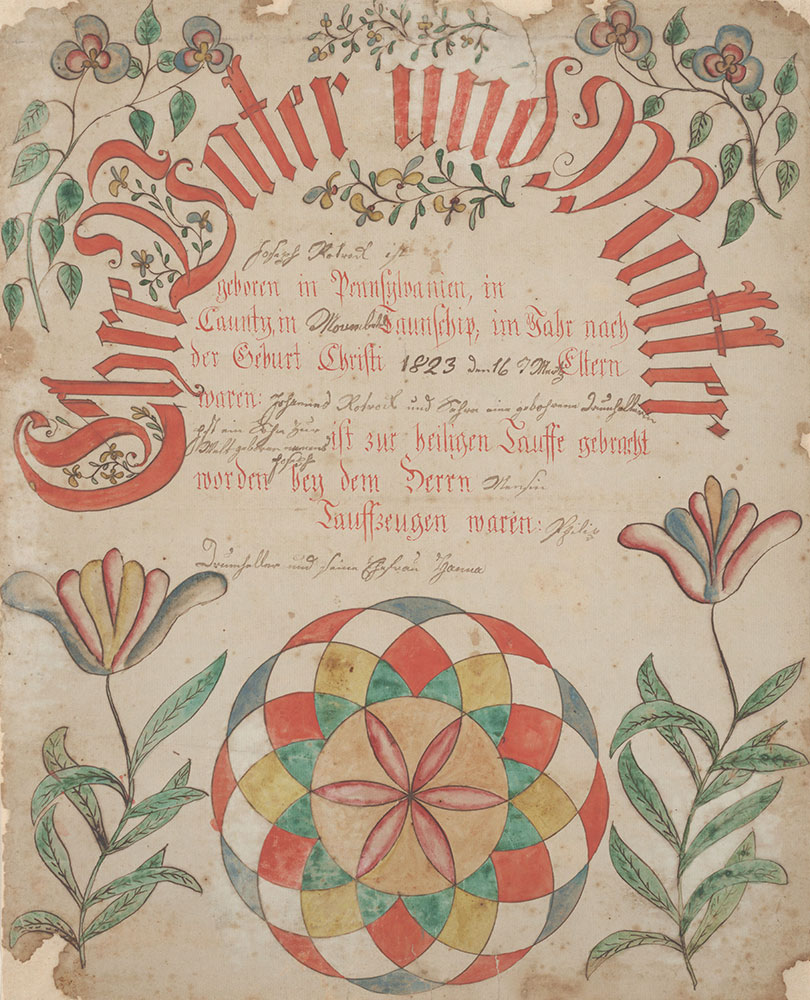 Ehre Vater und Mutter
Joseph Rotrock ist
geboren in Pennsylvanien, in
Caunty, in Taunschip, im Jahr nach
der Geburt Christi 1823 den 16 Eltern
waren: Johannes Rotrock und eine gebohrene
ist ein Sohn zur
Welt gebohren namens ist zur heiligen Tauffe gebracht
Joseph
worden bey dem Herrn
Tauffzeugen waren: Philip
Drumheller und seine Ehefrau Hanna